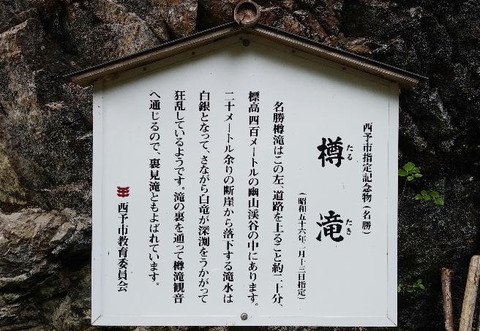 西予市指定記念物(名勝)
樽滝
たる
たき
(昭和五十六年二月十三日指定)
名勝樽滝はこの左、道路を上ること約二十分、
標高四百メートルの幽山渓谷の中にあります。
二十メートル余りの断崖から落下する滝水は
白銀となって、さながら白竜が深渕をうかがって
狂乱しているようです。滝の裏を通って樽滝観音
へ通じるので、裏見滝ともよばれています。
西予市教育委員会